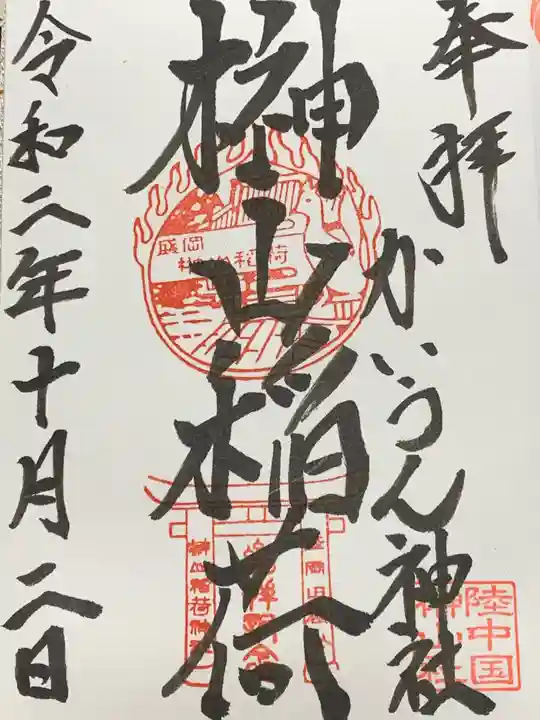 奉拝
かいうん神社
榊山稲荷
令和二年十月二日
盛岡
榊山稲荷
陸中国